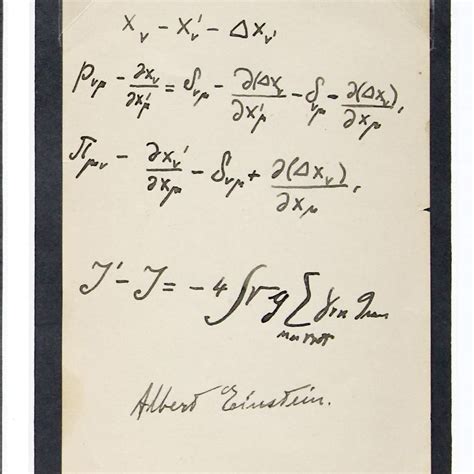 x_ν - x_ν' - Δx_ν'
p_νμ - ∂x_ν/∂x'_μ = δ_νμ - ∂(Δx_ν)/∂x'_μ - δ_νμ - ∂(Δx_ν)/∂x_μ,
π_μν - ∂x_ν'/∂x_μ - δ_νμ + ∂(Δx_ν)/∂x_μ,
J' - J = -4 ∫ √g Σ
Albert Einstein.